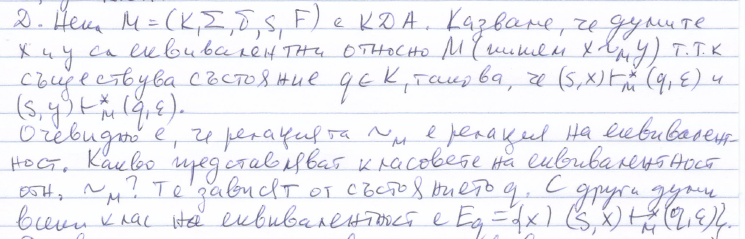 D. Нека M = (K, Σ, δ, s, F) е КДА. Казваме, че думите
x и y са еквивалентни относно M (пишем x ~ₘ y) т.т.к
съществува състояние q ∈ K, такова, че (s, x) ⊢*ₘ (q, ε) и
(s, y) ⊢*ₘ (q, ε).
Очевидно е, че релацията ~ₘ е релация на еквивалент-
ност. Какво представляват класовете на еквивалентност
отн. ~ₘ? Те зависят от състоянието q. С други думи
всеки клас на еквивалентност е E_q = {x | (s, x) ⊢*ₘ (q, ε)}.